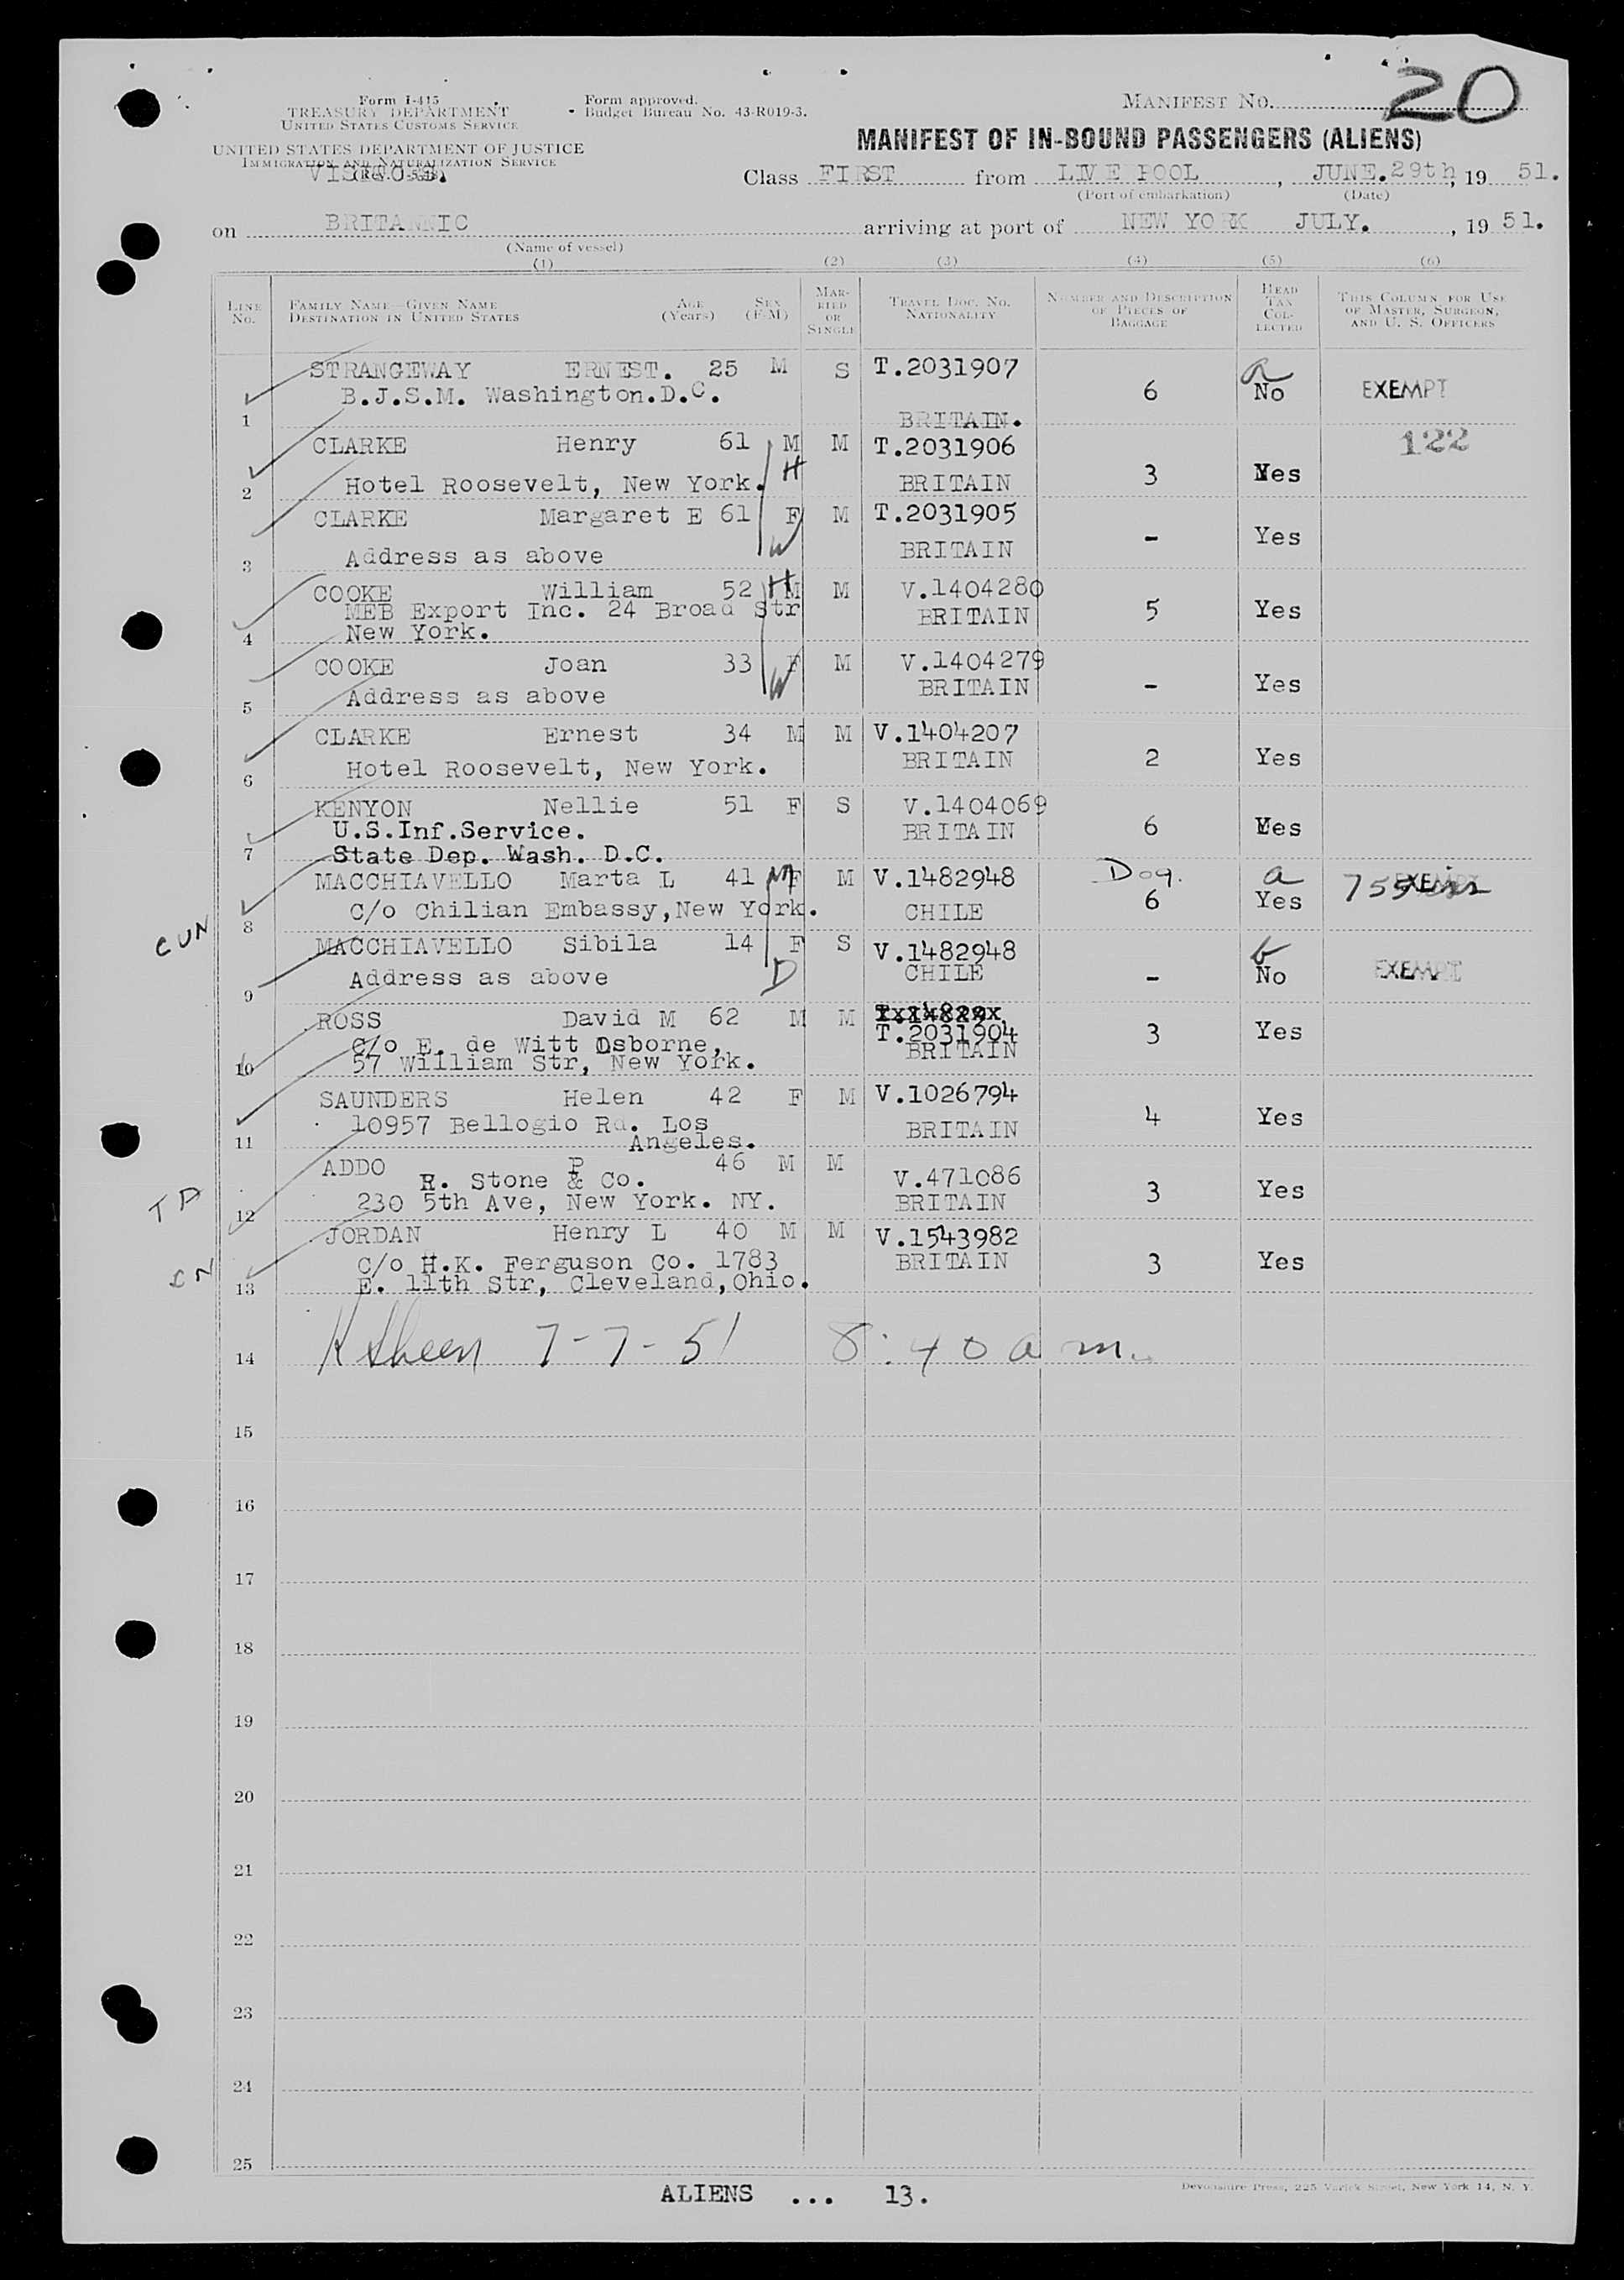 20
Form I-415
TREASURY DEPARTMENT
UNITED STATES CUSTOMS SERVICE
UNITED STATES DEPARTMENT OF JUSTICE
IMMIGRATION AND NATURALIZATION SERVICE
VISITORS.
Form approved.
Budget Bureau No. 43-R019-3.
MANIFEST NO.
MANIFEST OF IN-BOUND PASSENGERS (ALIENS)
Class FIRST from LIVE POOL, JUNE.29th, 19 51.
(Port of embarkation) (Date)
on BRITANNIC arriving at port of NEW YORK JULY., 19 51.
(Name of vessel)
(1) (2) (3) (4) (5) (6)
LINE NO. FAMILY NAME—GIVEN NAME DESTINATION IN UNITED STATES AGE (Years) SEX (F-M) MARRIED OR SINGLE TRAVEL DOC. NO. NATIONALITY NUMBER AND DESCRIPTION OF PIECES OF BAGGAGE HEAD TAX COLLECTED THIS COLUMN FOR USE OF MASTER, SURGEON, AND U. S. OFFICERS
STRANGEWAY ERNEST. 25 M S T.2031907 a
B.J.S.M. Washington.D.C. 6 No EXEMPT
1 BRITAIN.
CLARKE Henry 61 M M T.2031906 122
H
2 Hotel Roosevelt, New York. BRITAIN 3 Yes
CLARKE Margaret E 61 F M T.2031905
W
3 Address as above BRITAIN - Yes
COOKE William 52 H M M V.1404280
MEB Export Inc. 24 Broad Str BRITAIN 5 Yes
4 New York.
COOKE Joan 33 F M V.1404279
W
5 Address as above BRITAIN - Yes
CLARKE Ernest 34 M M V.1404207
6 Hotel Roosevelt, New York. BRITAIN 2 Yes
KENYON Nellie 51 F S V.1404069
U.S.Inf.Service. BRITAIN 6 Yes
7 State Dep. Wash. D.C.
MACCHIAVELLO Marta L 41 M F M V.1482948 Dog. a EXEMPT
8 C/o Chilian Embassy,New York. CHILE 6 Yes
CUN
MACCHIAVELLO Sibila 14 F S V.1482948 b
9 Address as above D CHILE - No EXEMPT
ROSS David M 62 M M
C/o E. de Witt Osborne, T.2031904 3 Yes
10 57 William Str, New York. BRITAIN
SAUNDERS Helen 42 F M V.1026794
10957 Bellogio Rd. Los BRITAIN 4 Yes
11 Angeles.
ADDO P 46 M M
R. Stone & Co. V.471086
12 230 5th Ave, New York. NY. BRITAIN 3 Yes
JORDAN Henry L 40 M M V.1543982
C/o H.K. Ferguson Co. 1783 BRITAIN 3 Yes
13 E. 11th Str, Cleveland,Ohio.
14 7-7-51 8:40 a m.
15
16
17
18
19
20
21
22
23
24
25
ALIENS ... 13.
Devonshire Press, 225 Varick Street, New York 14, N. Y.